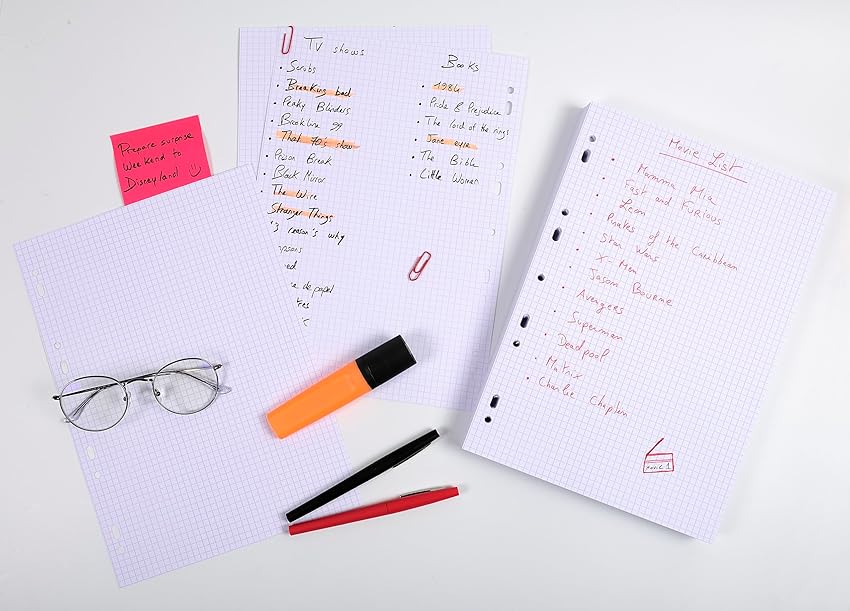 Prepare surprise
weekend to
Disneyland
TV shows
• Scrubs
• Breaking bad
• Peaky Blinders
• Brooklinn 99
• That 70's show
• Prison Break
• Black Mirror
• The Wire
• Stranger Things
3 reason's why
psons
ed
de papel
Books
• 1984
• Pride & Prejudice
• The lord of the rings
• Jane eyre
• The Bible
• Little Women
Movie List
• Mamma Mia
• Fast and Furious
• Leon
• Pirates of the Caribbean
• Star Wars
• X-Men
• Jason Bourne
• Avengers
• Superman
• Deadpool
• Matrix
• Charlie Chaplin